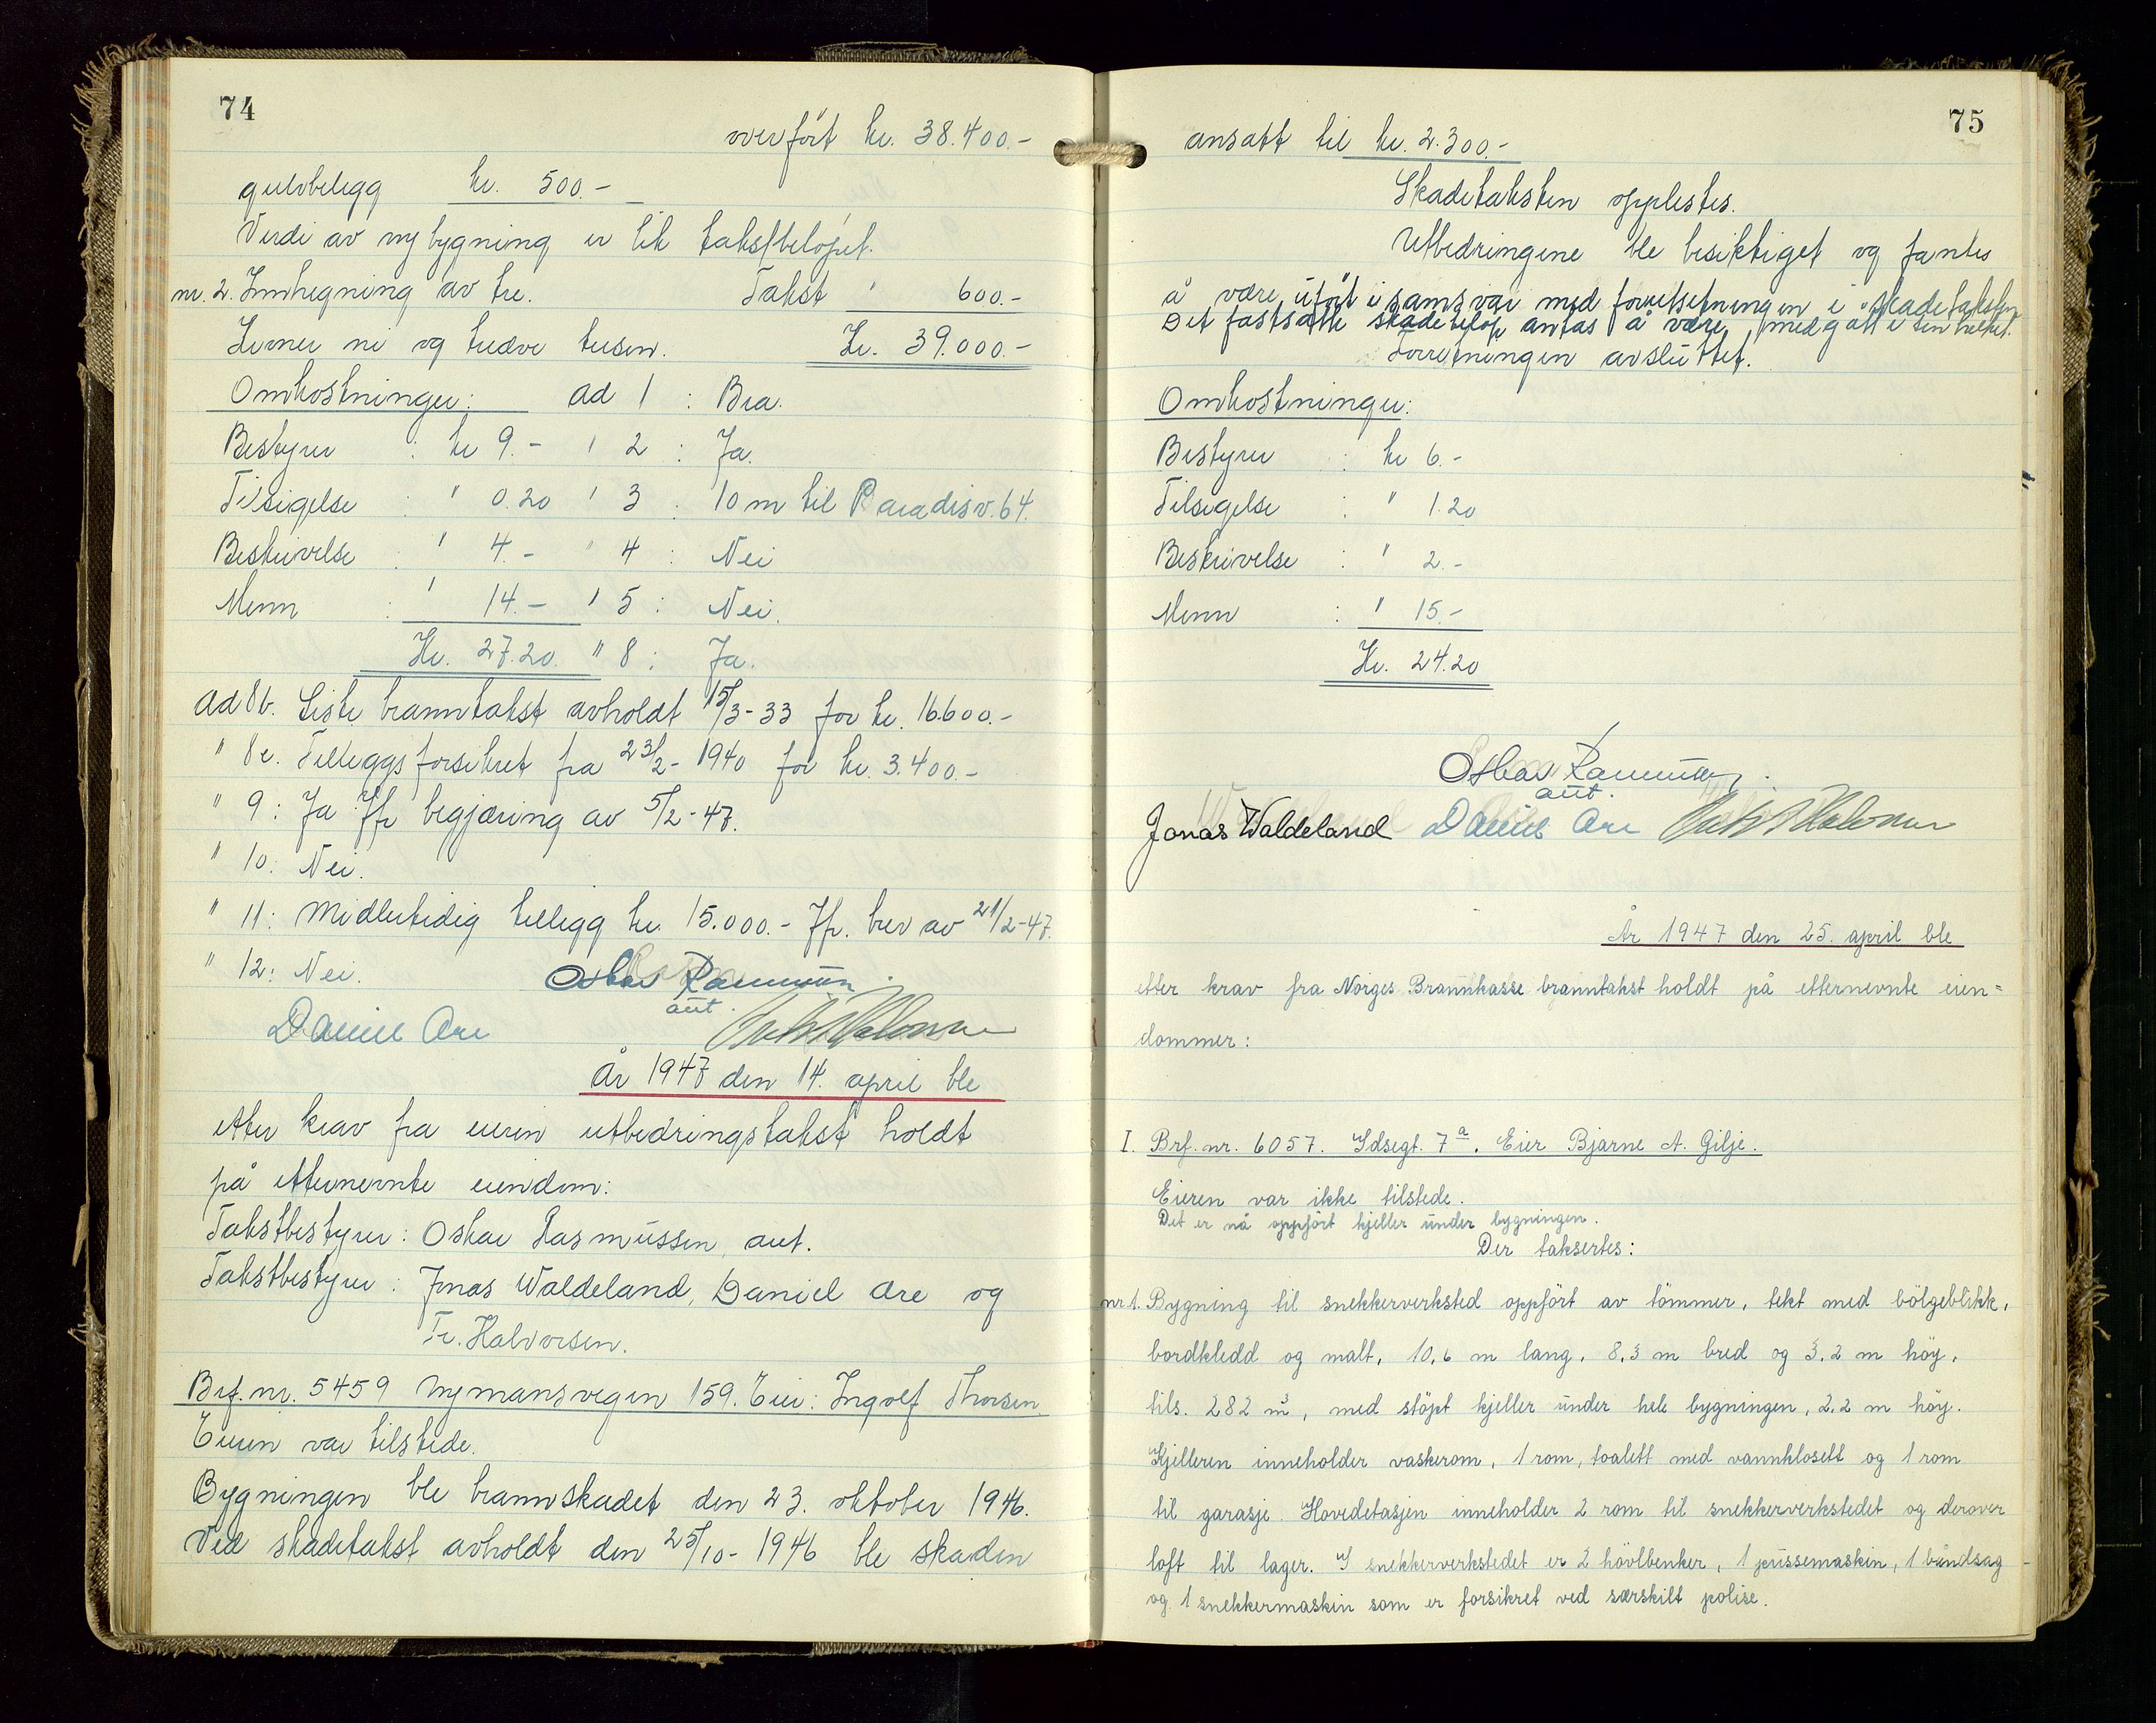 74
overført kr. 38.400.-
gulvbelegg kr. 500.-
Verdi av ny bygning er lik takstbeløpet.
nr. 2. Innhegning av tre. Takst " 600.-
Kroner ni og tredve tusen. Kr. 39.000.-
Omkostninger: ad 1 : Bra.
Bestyrer : kr 9.- " 2 : Ja.
Tilsigelse : " 0.20 " 3 : 10 m til Paradisv. 64.
Beskrivelse : " 4.- " 4 : Nei
Menn : " 14.- " 5 : Nei.
Kr. 27.20. " 8 : Ja.
ad 8b. Siste branntakst avholdt 15/3-33 for kr. 16.600.-
" 8e. Tilleggsforsikret fra 23/2-1940 for kr. 3.400.-
" 9: Ja Jfr begjæring av 5/2-47.
" 10: Nei.
" 11: Midlertidig tillegg kr. 15.000.- Jfr. brev av 21/2-47.
" 12: Nei. Oskar Rasmussen
aut.
Daniel Are Tr. Halvorsen
År 1947 den 14. april ble
etter krav fra eieren utbedringstakst holdt
på etternevnte eiendom:
Takstbestyrer: Oskar Rasmussen, aut.
Takstbestyrer: Jonas Waldeland, Daniel Are og
Tr. Halvorsen.
Brf. nr. 5459 Nymansveien 159. Eier: Ingolf Thorsen
Eieren var tilstede.
Bygningen ble brannskadet den 23. oktober 1946.
Ved skadetakst avholdt den 25/10-1946 ble skaden
75
ansatt til kr. 2.300.-
Skadetaksten opplestes.
Utbedringene ble besiktiget og fantes
å være utført i samsvar med forutsetningen i skadetaksten
Det fastsatte skadebeløp antas å være medgått i sin helhet.
Forretningen avsluttet.
Omkostninger:
Bestyrer : kr 6.-
Tilsigelse : " 1.20
Beskrivelse : " 2.-
Menn : " 15.-
Kr. 24.20
Oskar Rasmussen
aut.
Jonas Waldeland Daniel Are Tr. Halvorsen
År 1947 den 25. april ble
etter krav fra Norges Brannkasse branntakst holdt på etternevnte eien=
dommer:
I. Brf. nr. 6057. Idsegt. 7a. Eier Bjarne A. Gilje.
Eieren var ikke tilstede.
Det er nå oppført kjeller under bygningen.
Der taksertes:
nr 1. Bygning til snekkerverksted oppført av tømmer, tekt med bølgeblikk,
bordkledd og malt, 10,6 m lang, 8,3 m bred og 3,2 m høy,
tils. 282 m3, med støpt kjeller under hele bygningen, 2,2 m høy.
Kjelleren inneholder vaskerom, 1 rom, toalett med vannklosett og 1 rom
til garasje. Hovedetasjen inneholder 2 rom til snekkerverkstedet og derover
loft til lager. I snekkerverkstedet er 2 høvlbenker, 1 pussemaskin, 1 båndsag
og 1 snekkermaskin som er forsikret ved særskilt polise.